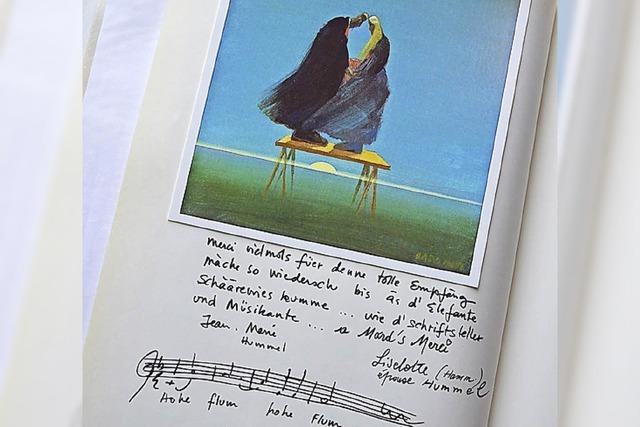 merci vielmols füer denne tolle Empfäng
mäche so wiedersch bis äs d'Elefante
Schääremies kumme ... wie d'schriftsteller
und Müsikante ... a Mord's Merci
Jean. Marie
Hummel
Liselotte (Hamm)
épouse Hummel
Hohe flum hohe Flum